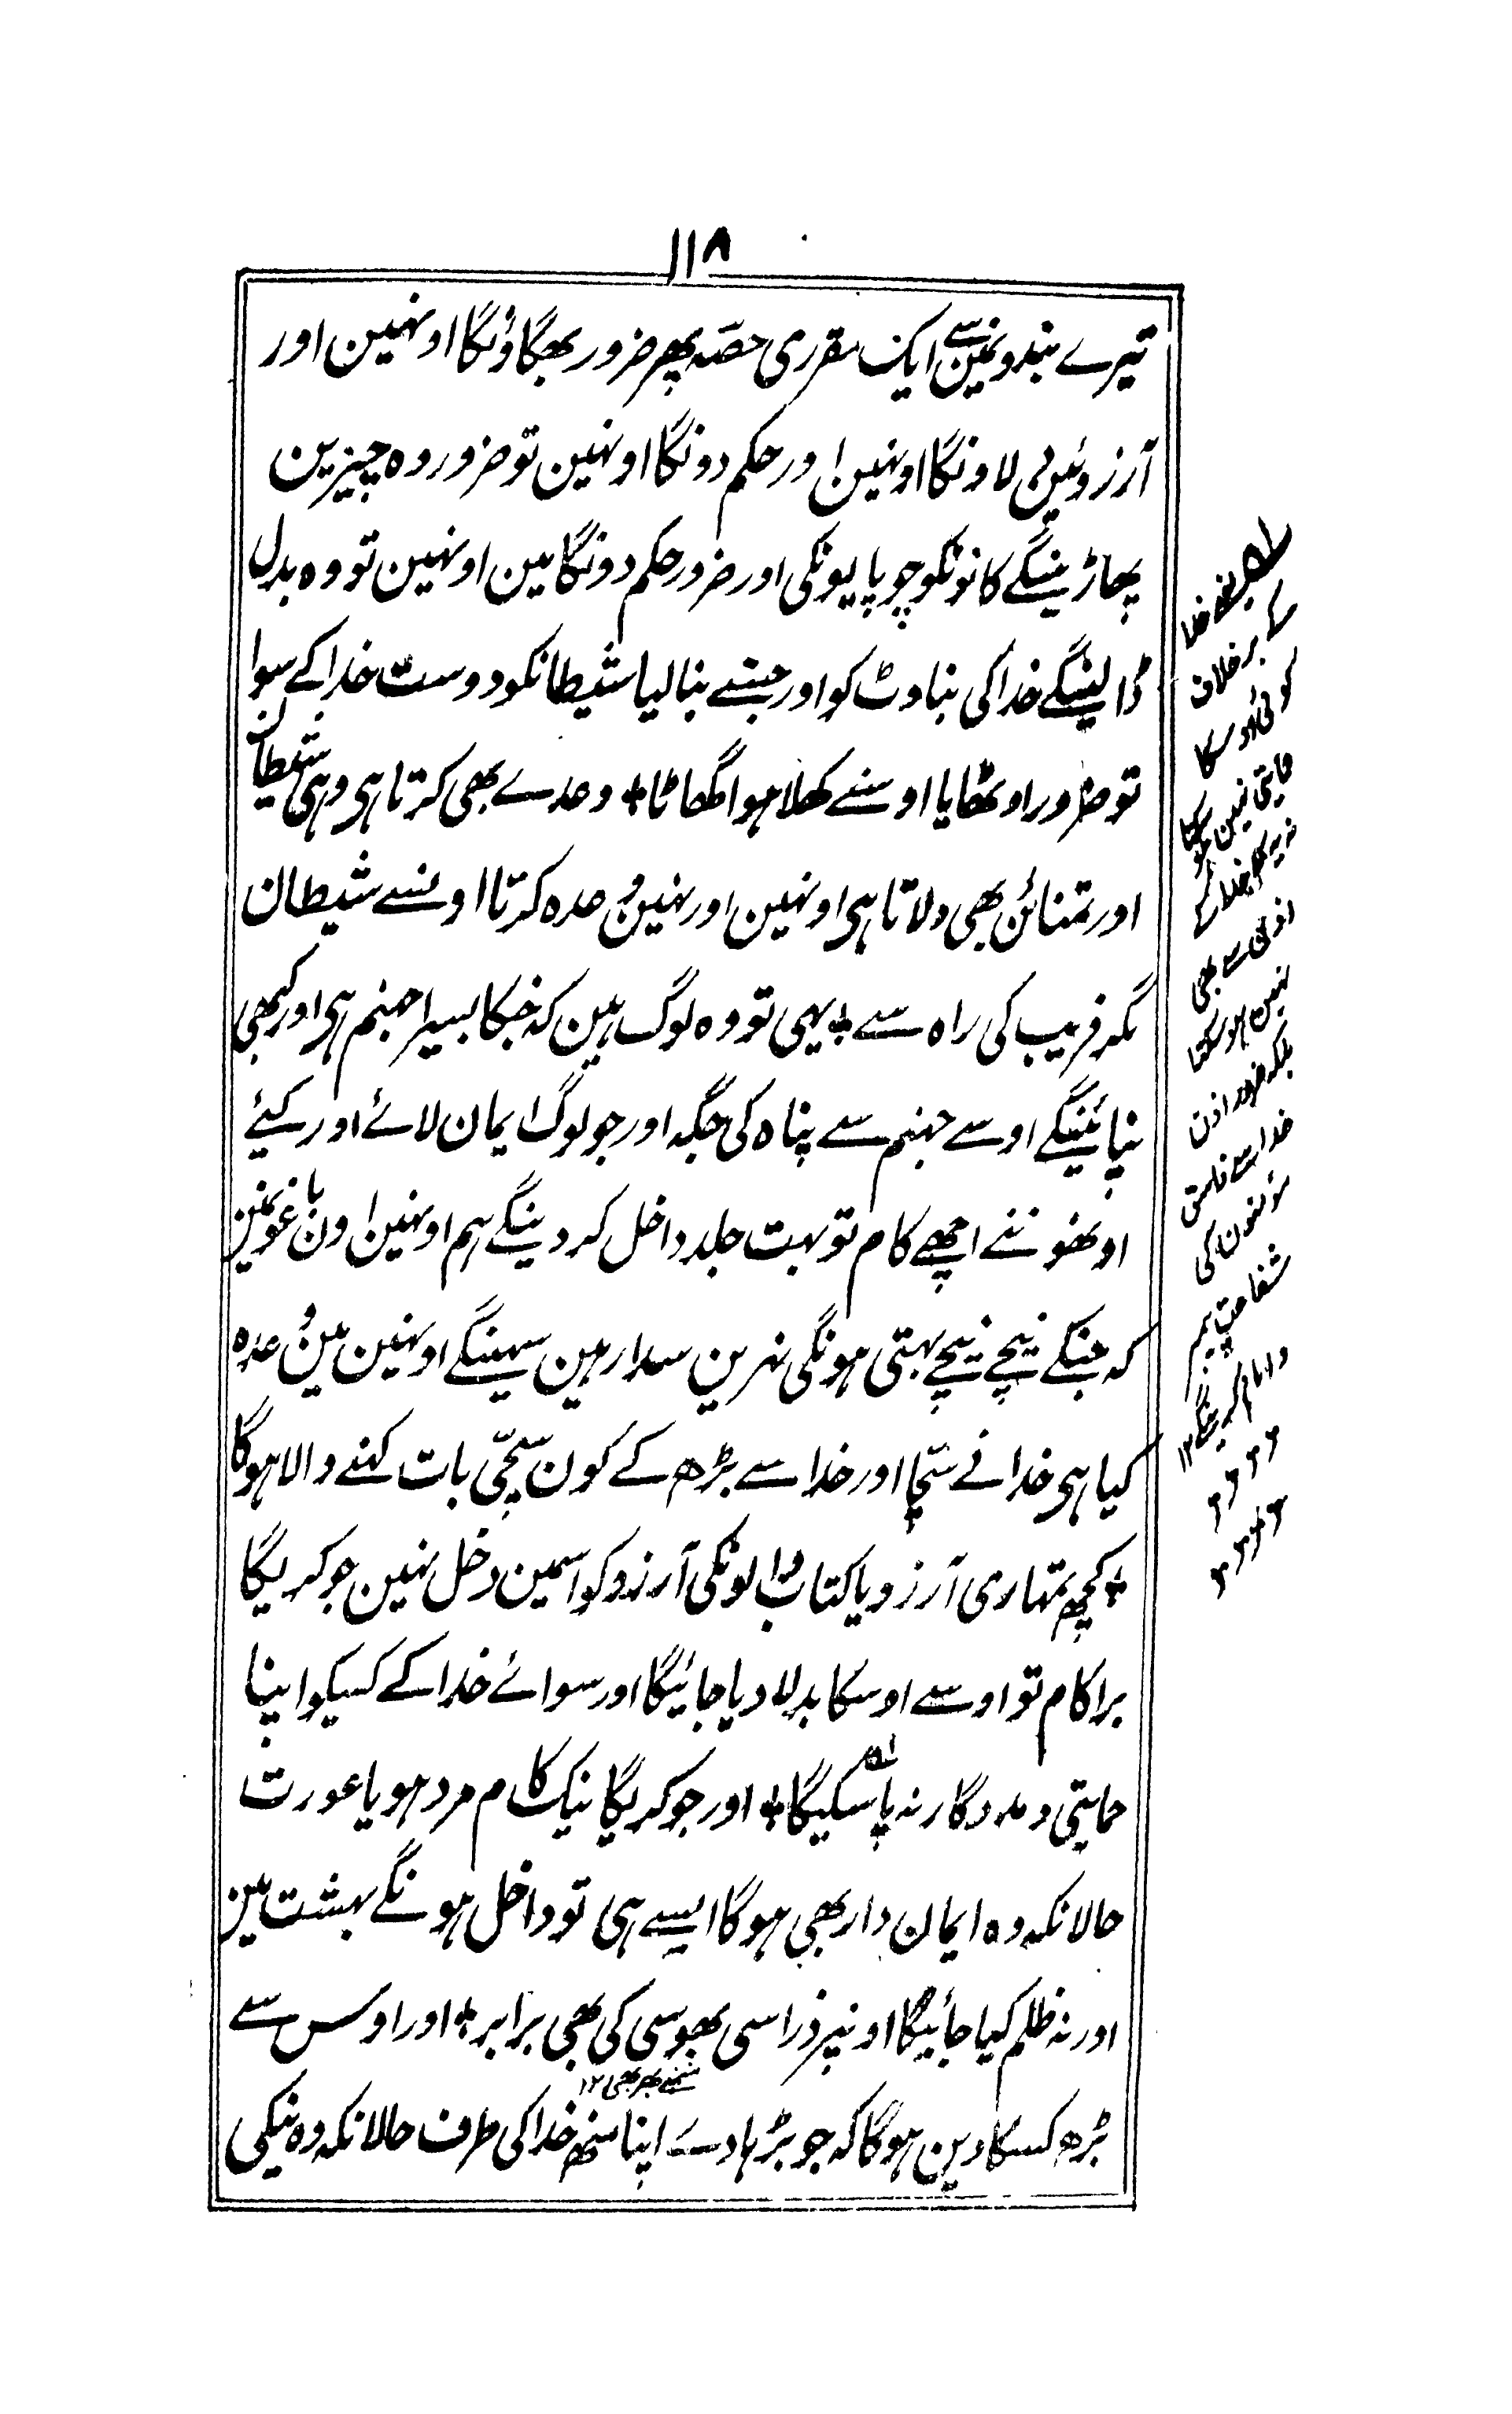 ۱۱۸
تیرے بندونمین سے ایک مقرری حصہ پھر ضرور بھگاؤنگا اونہین اور
آرزوئین دلاونگا اونہین اور حکم دونگا اونہین تو ضرور وہ چیزین
پھاڑینگے کانونکو چوپایونکی اور ضرور حکم دونگا مین اونہین تو وہ بدل
ڈالینگے خدا کی بناوٹ کو اور جسنے بنالیا شیطانکو دوست خدا کے سوا
تو ضرور اوٹھایا اوسنے کھلا ہوا گھاٹا + وعدے بھی کرتا ہی وہی شیطان
اور تمنائن بھی دلاتا ہی اونہین اور نہین وعدہ کرتا اونسے شیطان
مگر فریب کی راہ سے + یہی تو وہ لوگ ہین کہ جنکا بسیرا جہنم ہی اور کبھی
نپائینگے اوسے جہنم سے پناہ کی جگہ اور جو لوگ ایمان لائے اور کیئے
اونھونے اچھے کام تو بہت جلد داخل کردینگے ہم اونہین اون باغونمین
کہ جنکے نیچے نیچے بہتی ہونگی نہرین سدا رہین سہینگے اونہین مین وعدہ
کیا ہی خدا نے سچا اور خدا سے بڑھ کے کون سچّی بات کہنے والا ہوگا
+ کچھ تمہاری آرزو یا کتاب والونکی آرزو کو اسمین دخل نہین جو کریگا
برا کام تو اوسے اوسکا بدلا دیا جائیگا اور سوائے خدا کے کسیکو اپنا
حمایتی و مددگار نہ پاسکیگا + اور جو کریگا نیک کام مرد ہو یا عورت
حالانکہ وہ ایمان دار بھی ہوگا ایسے ہی تو داخل ہونگے بہشت مین
اور نہ ظلم کیا جائیگا اونپر ذرا سی بھوسی کی بھی برابر + اور اوس سے
بڑھ کسکا دین ہوگا کہ جو بڑہادے اپنا منھ خدا کی طرف حالانکہ وہ نیکی
یعنے خدا
کے برخلاف
کوئی اوسکا
حمایتی نہین ہوسکتا
نہ یہ کہ خدا کے
اذن سے بھی
نہین ہوسکتا
بلکہ ضرور اذن
خدا سے فاسق
مؤمنون کی
شفاعت پیمبر
و امام کرینگے ۱۲